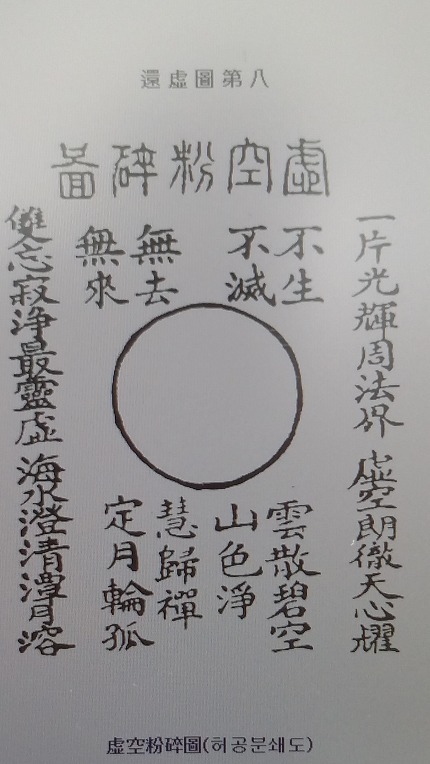 還虛圖第八
虛空粉碎啚
一片光輝周法界 虛空朗徹天心耀
不生
不滅
無去
無來
雲散碧空
山色淨
慧歸禪
定月輪孤
雙忘寂淨最靈虛 海水澄清潭月溶
虛空粉碎圖(허공분쇄도)